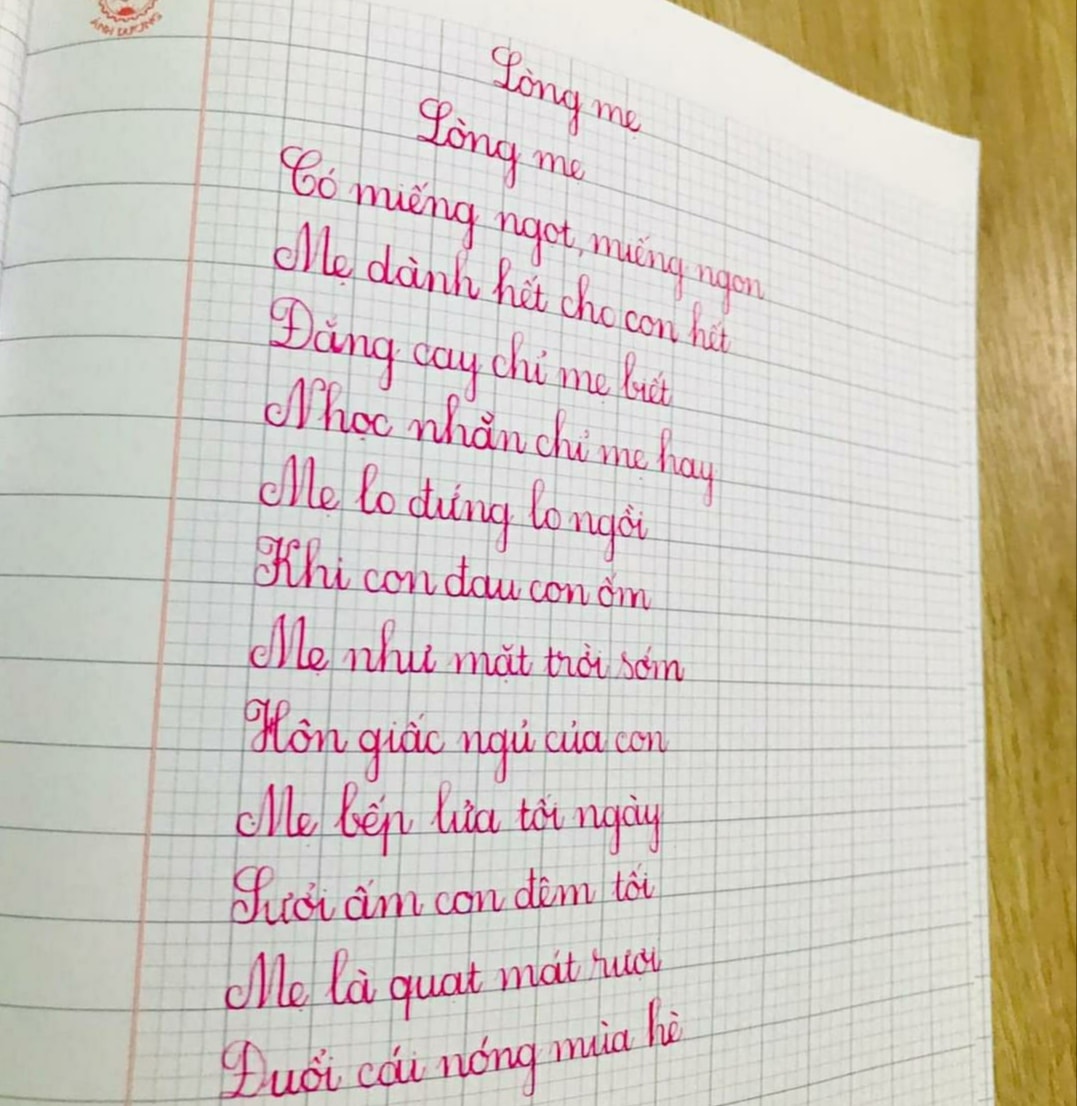 ÁNH DƯƠNG
Lòng mẹ
Lòng mẹ
Có miếng ngọt, miếng ngon
Mẹ dành hết cho con hết
Đắng cay chỉ mẹ biết
Nhọc nhằn chỉ mẹ hay
Mẹ lo đứng lo ngồi
Khi con đau con ốm
Mẹ như mặt trời sớm
Hôn giấc ngủ của con
Mẹ bếp lửa tối ngày
Sưởi ấm con đêm tối
Mẹ là quạt mát rượi
Đuổi cái nóng mùa hè